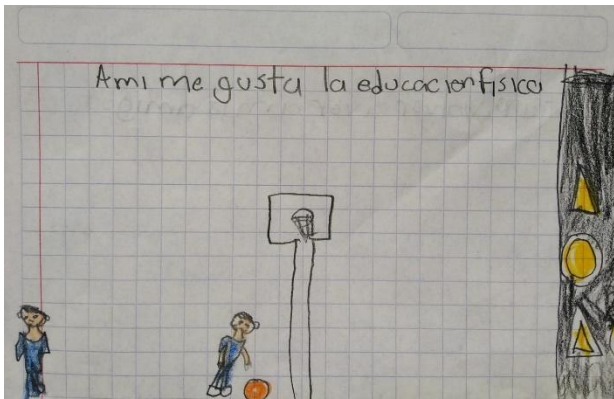 Ami me gusta la educacion fisica